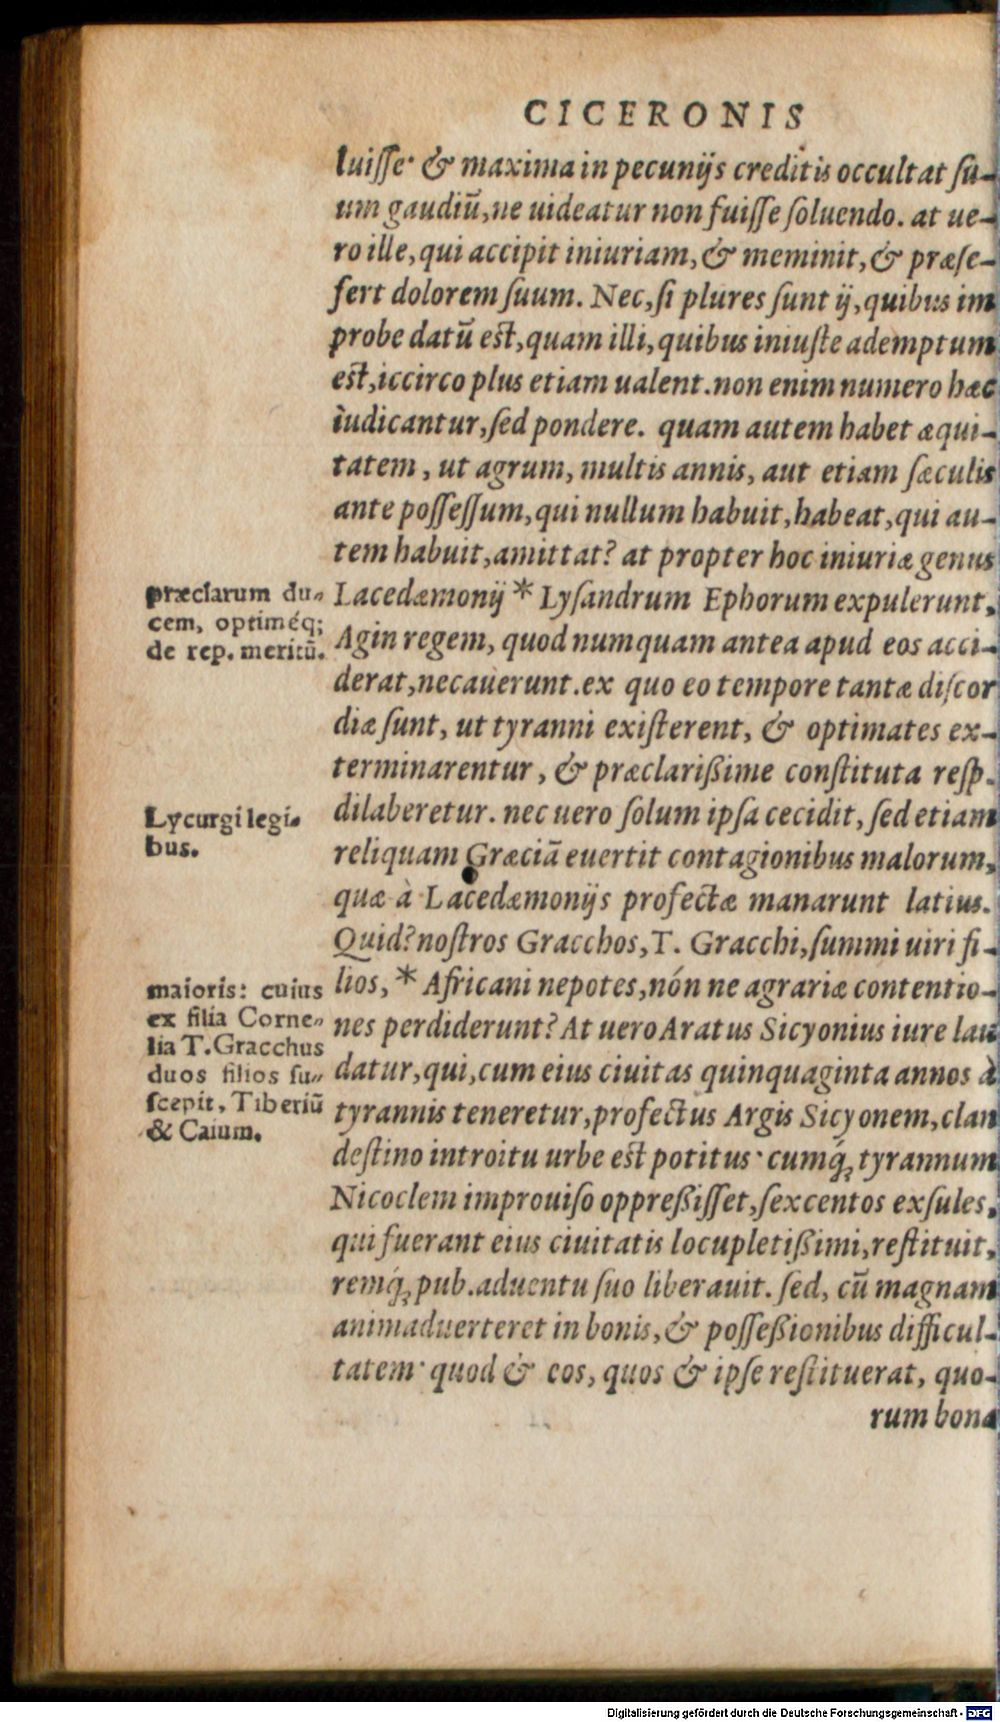 CICERONIS
luiſſe· & maxima in pecunijs creditis occultat ſu-
um gaudiũ, ne uideatur non fuiſſe ſoluendo. at ue-
ro ille, qui accipit iniuriam, & meminit, & præſe-
fert dolorem ſuum. Nec, ſi plures ſunt ij, quibus im
probe datũ eſt, quam illi, quibus iniuſte ademptum
eſt, iccirco plus etiam ualent. non enim numero hæc
iudicantur, ſed pondere. quam autem habet æqui-
tatem, ut agrum, multis annis, aut etiam ſæculis
ante poſſeſſum, qui nullum habuit, habeat, qui au-
tem habuit, amittat? at propter hoc iniuriæ genus
Lacedæmonij * Lyſandrum Ephorum expulerunt,
Agin regem, quod numquam antea apud eos acci-
derat, necauerunt. ex quo eo tempore tantæ diſcor
diæ ſunt, ut tyranni exiſterent, & optimates ex-
terminarentur, & præclarißime conſtituta reſp.
dilaberetur. nec uero ſolum ipſa cecidit, ſed etiam
reliquam Græciã euertit contagionibus malorum,
quæ à Lacedæmonijs profectæ manarunt latius.
Quid? noſtros Gracchos, T. Gracchi, ſummi uiri fi-
lios, * Africani nepotes, nón ne agrariæ contentio-
nes perdiderunt? At uero Aratus Sicyonius iure lau
datur, qui, cum eius ciuitas quinquaginta annos à
tyrannis teneretur, profectus Argis Sicyonem, clan
deſtino introitu urbe eſt potitus· cumq́; tyrannum
Nicoclem improuiſo oppreßiſſet, ſexcentos exſules,
qui fuerant eius ciuitatis locupletißimi, reſtituit,
remq́; pub. aduentu ſuo liberauit. ſed, cũ magnam
animaduerteret in bonis, & poſſeßionibus difficul-
tatem· quod & eos, quos & ipſe reſtituerat, quo-
rum bona
præclarum du-
cem, optiméq;
de rep. meritũ.
Lycurgi legi-
bus.
maioris: cuius
ex filia Corne-
lia T. Gracchus
duos filios ſu-
ſcepit, Tiberiũ
& Caium.
Digitalisierung gefördert durch die Deutsche Forschungsgemeinschaft - DFG